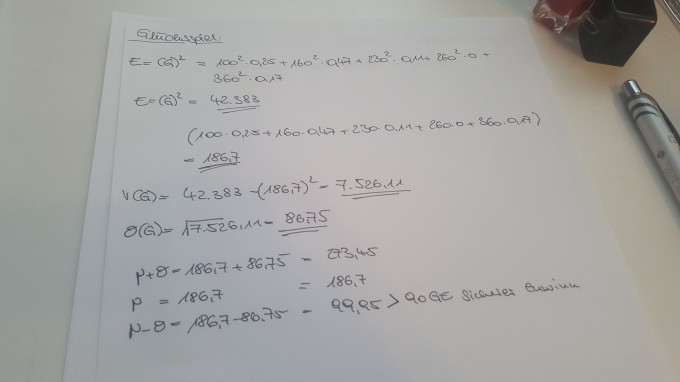 Glücksspiel:
E=(G)² = 100²·0,25+160²·0,47+230²·0,11+260²·0+
360²·0,17
E=(G)² = 42.383
(100·0,25+160·0,47+230·0,11+260·0+360·0,17)
= 186,7
V(G)= 42.383-(186,7)² = 7.526,11
σ(G)= √7.526,11 = 86,75
μ+σ = 186,7+86,75 = 273,45
μ = 186,7 = 186,7
μ-σ = 186,7-86,75 = 99,95 > 90 GE Sicherer Gewinn